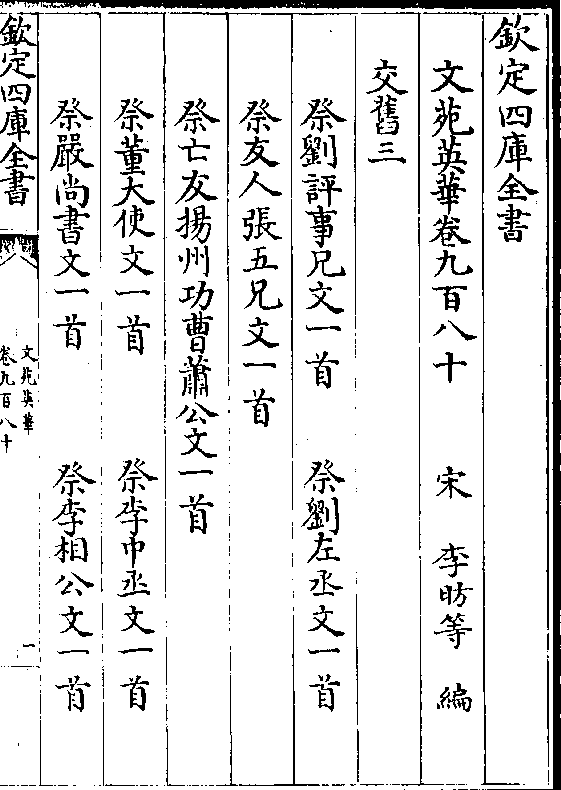 欽定四庫全書
文苑英華卷九百八十 宋 李昉等 編
交舊三
祭劉評事兄文一首 祭劉左丞文一首
祭友人張五兄文一首
祭亡友揚州功曹蕭公文一首
祭董大使文一首 祭李中丞文一首
祭嚴尚書文一首 祭李相公文一首
欽定四庫全書
文苑英華
卷九百八十
一